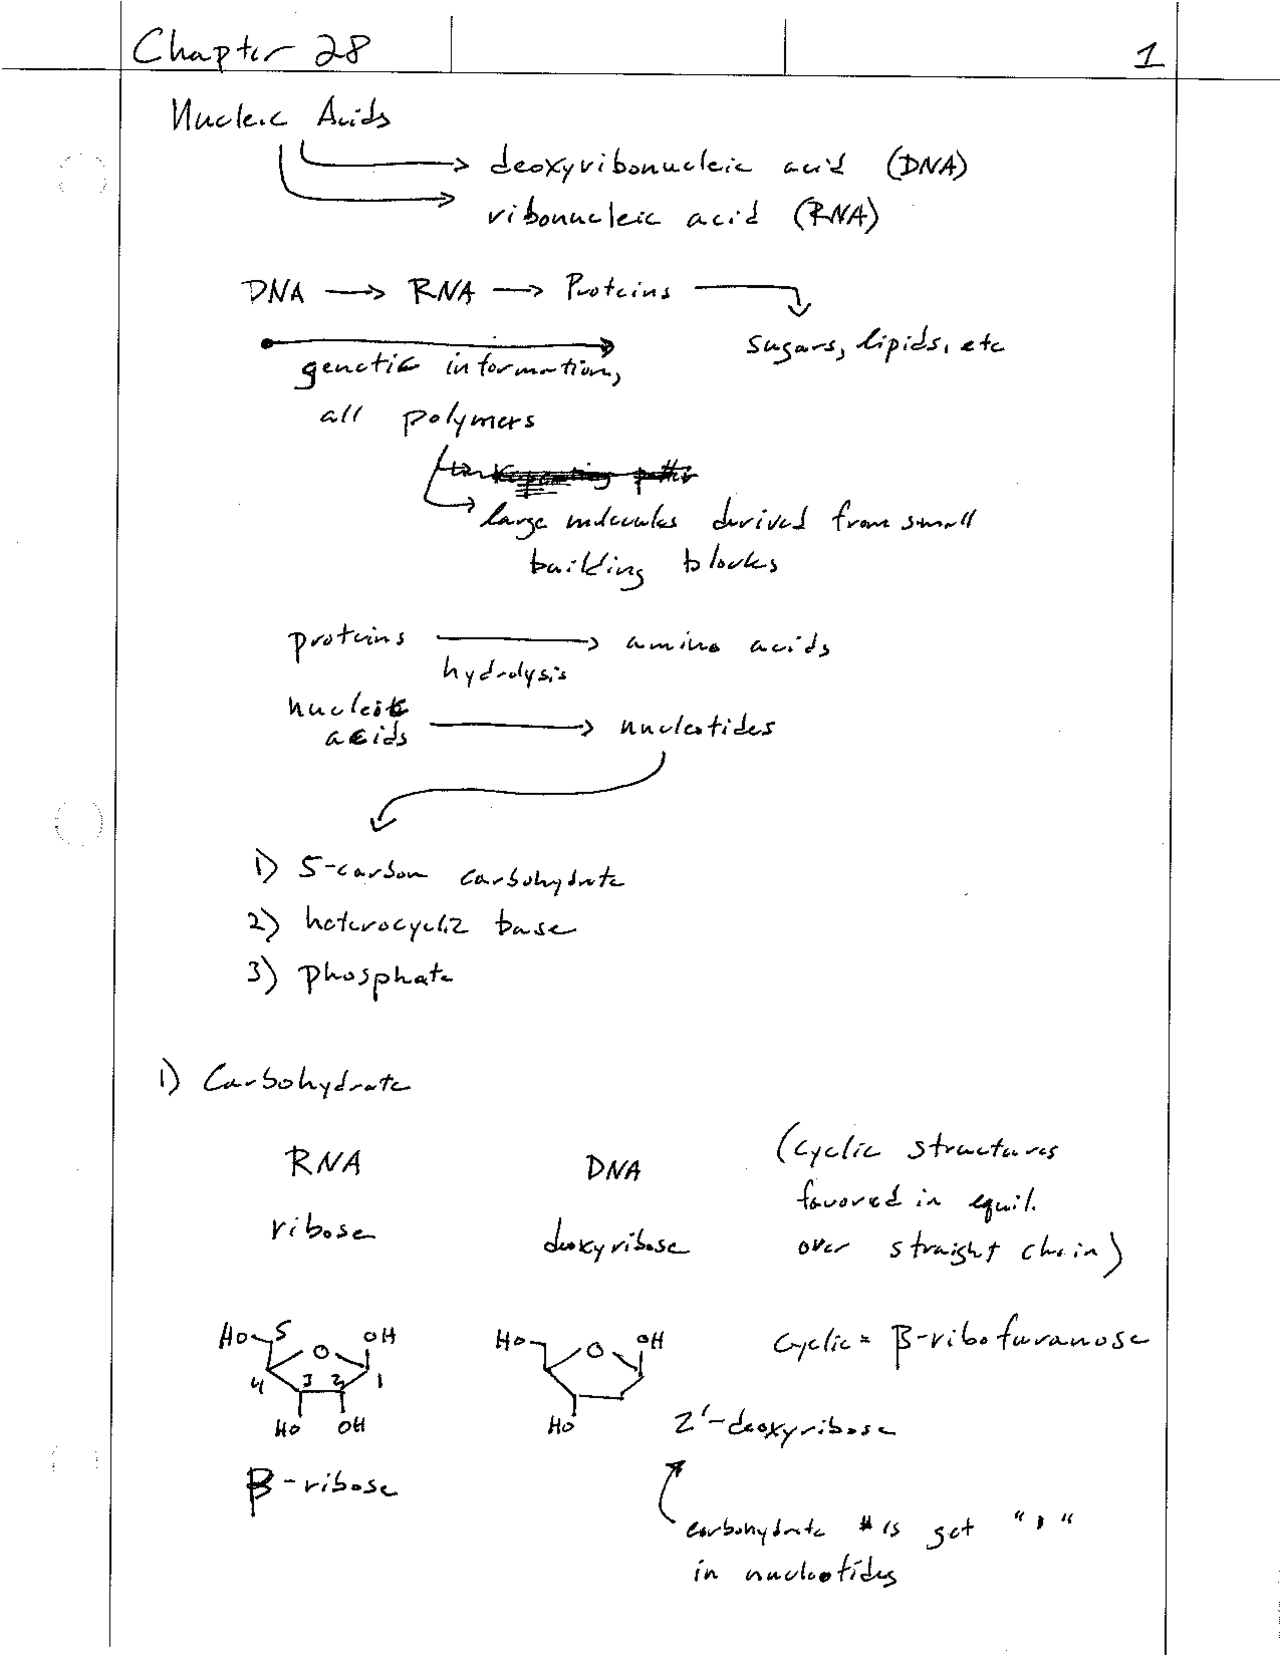 Chapter 28
1
Nucleic Acids
deoxyribonucleic acid (DNA)
ribonucleic acid (RNA)
DNA → RNA → Proteins
sugars, lipids, etc
genetic information,
all polymers
large molecules derived from small
building blocks
proteins → amino acids
hydrolysis
nucleic
acids → nucleotides
1) 5-carbon carbohydrate
2) heterocyclic base
3) phosphate
1) Carbohydrate
RNA DNA (cyclic structures
favored in equil.
ribose deoxyribose over straight chain)
HO 5 O OH HO O OH cyclic = β-ribofuranose
4 3 2 1
HO OH HO 2'-deoxyribose
β-ribose
carbohydrate #'s get " ' "
in nucleotides